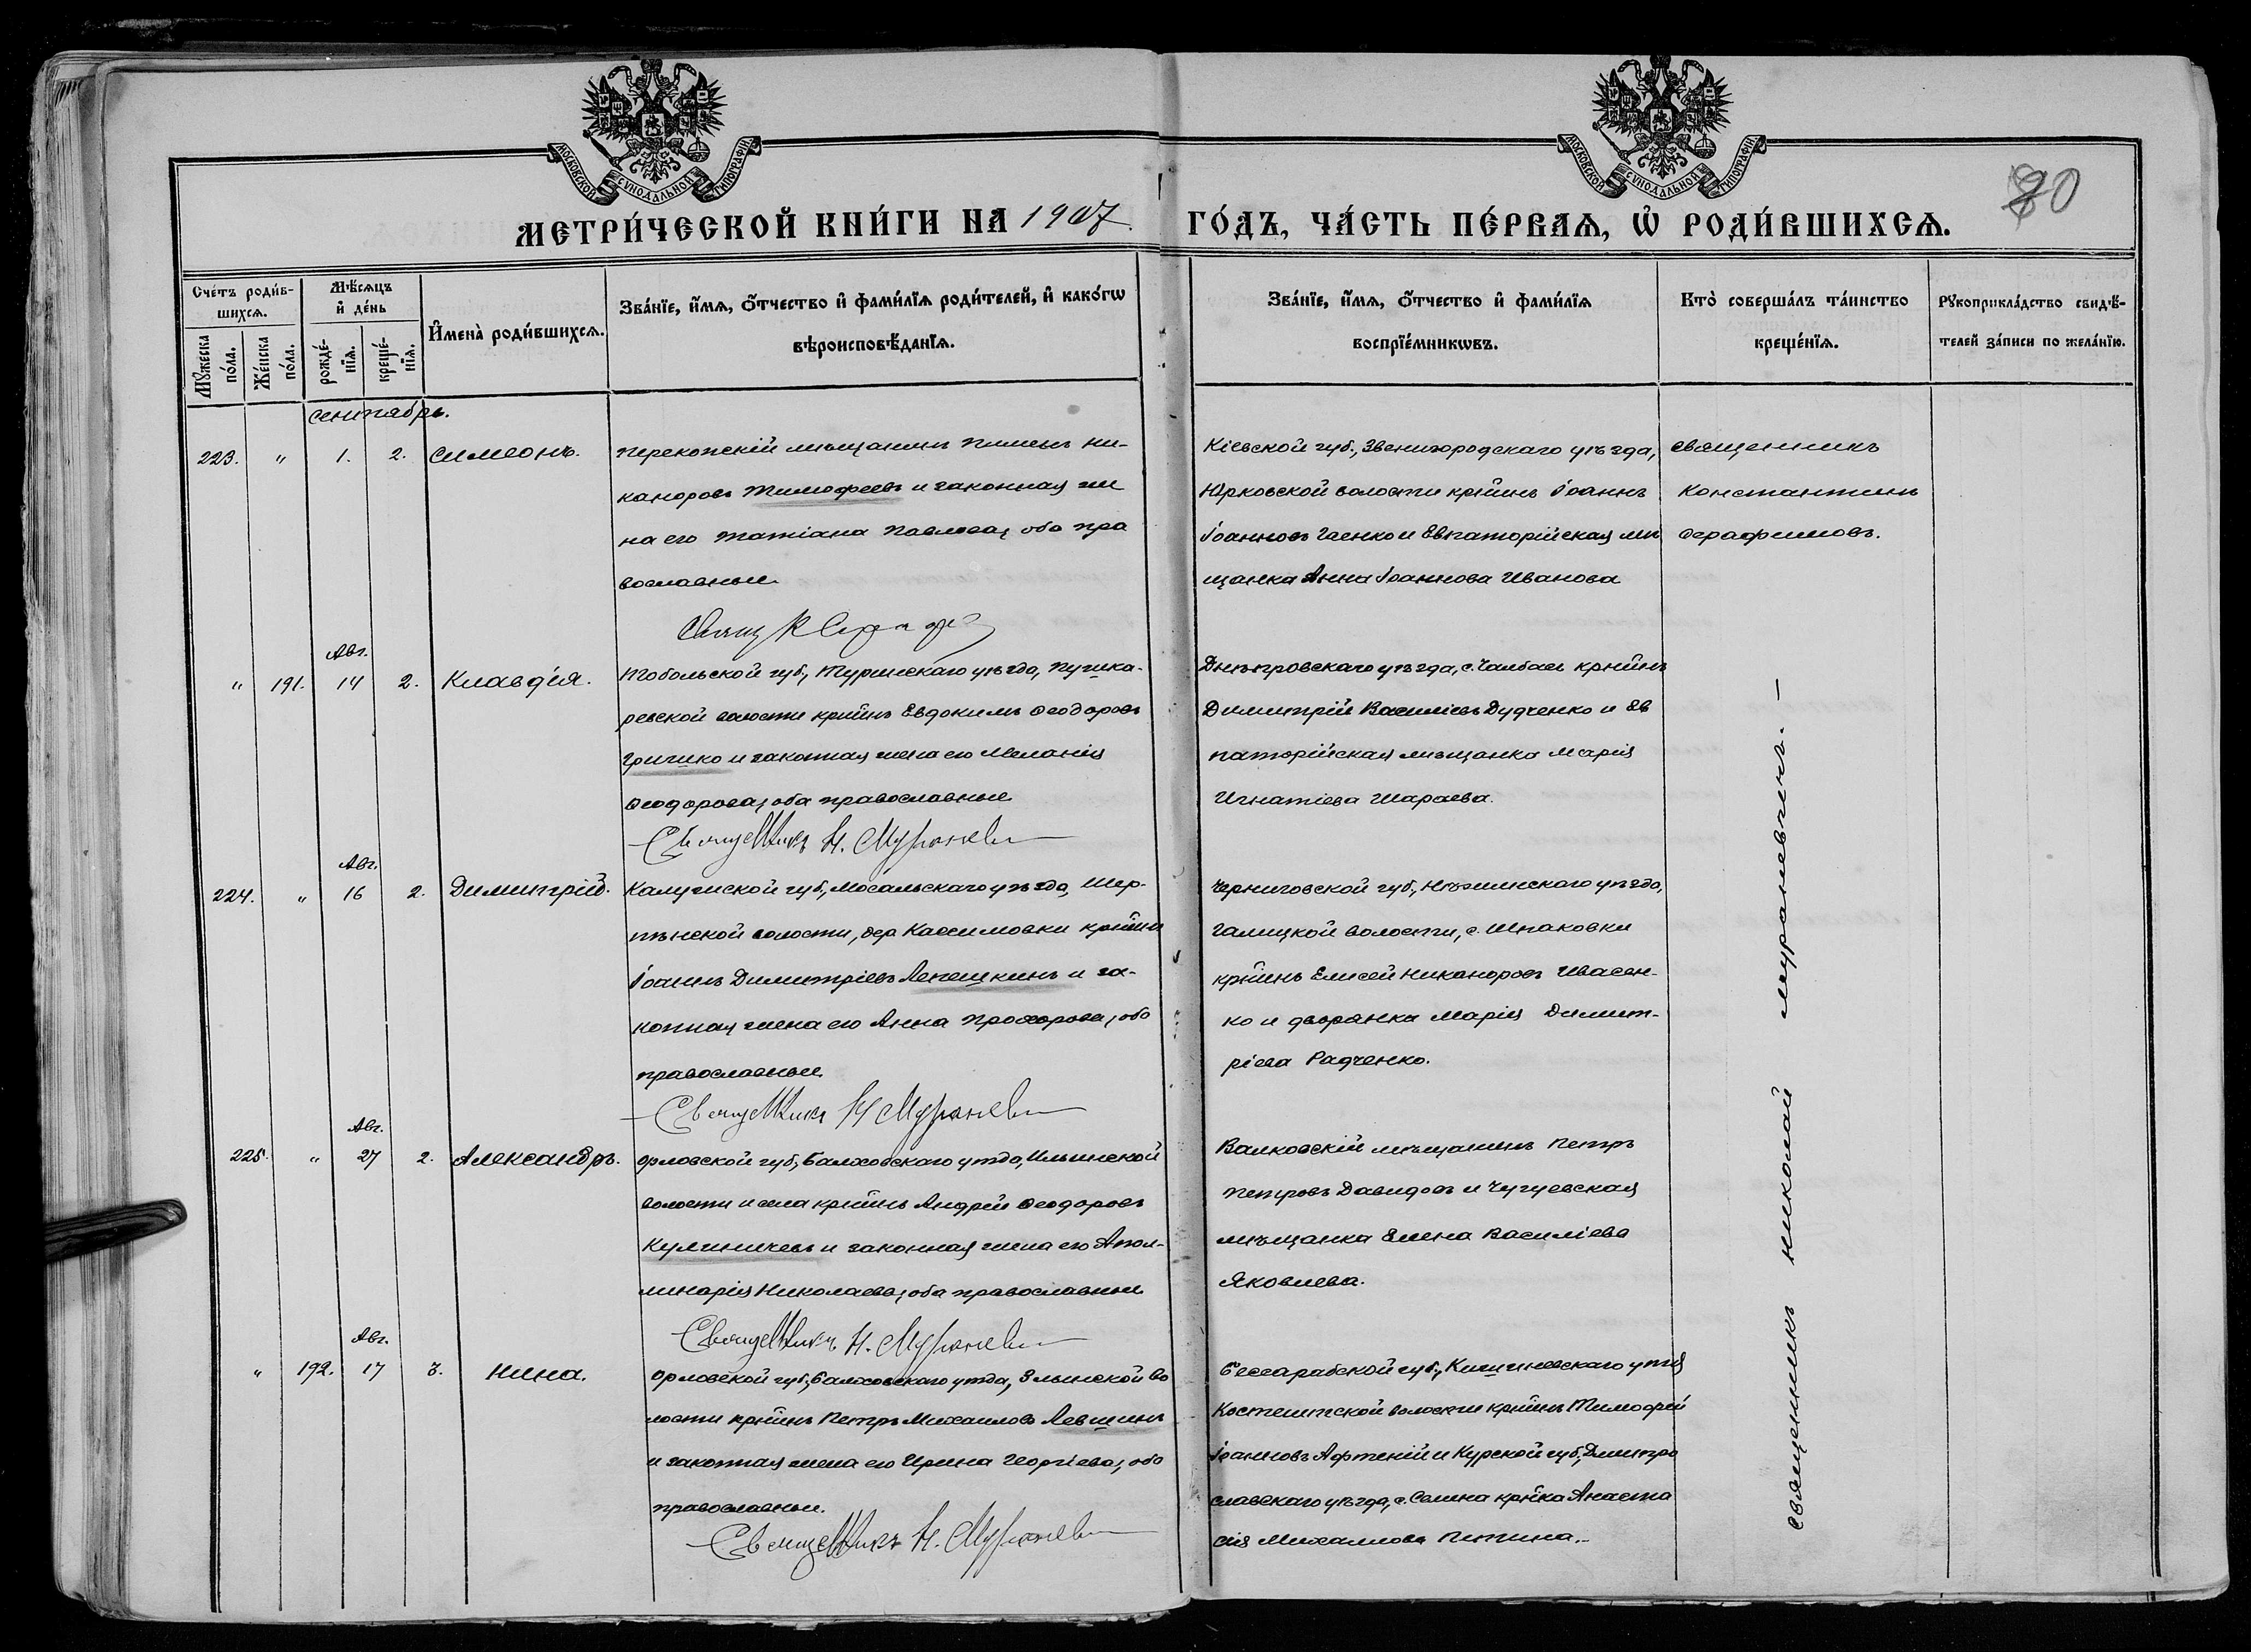 МОСКОВСКОЙ СУНОДАЛЬНОЙ ТИПОГРАФІИ
МОСКОВСКОЙ СУНОДАЛЬНОЙ ТИПОГРАФІИ
80
МЕТРИ́ЧЕСКОЙ КНИ́ГИ НА 1907 ГО́ДЪ, ЧА́СТЬ ПЕ́РВАѦ, Ѡ҆ РОДИ́ВШИХСѦ.
Сче́тъ роди́вшихсѧ.
Мꙋ́жеска по́ла.
Же́нска по́ла.
Мѣ́сѧцъ и҆ де́нь
рожде́нїѧ.
креще́нїѧ.
И҆мена̀ роди́вшихсѧ.
Зва́нїе, и҆́мѧ, ѻ҆́тчество и҆ фами́лїѧ роди́телей, и҆ како́гѡ
вѣроисповѣ́данїѧ.
Зва́нїе, и҆́мѧ, ѻ҆́тчество и҆ фами́лїѧ
воспрїе́мникѡвъ.
Кто̀ соверша́лъ та́инство
креще́нїѧ.
Рꙋкоприкла́дство свидѣ́-
телей за́писи по жела́нїю.
сентябрь.
223. " 1. 2. Симеонъ.
Перекопскій мѣщанинъ Пименъ Ни-
каноровъ Тимофеевъ и законная же
на его Татіана Павлова, оба пра
вославные.
Кіевской губ., Звенигородскаго уѣзда,
Юрковской волости кр-нинъ Іоаннъ
Іоанновъ Гаенко и Евпаторійская мѣ
щанка Анна Іоаннова Иванова
Священникъ
Константинъ
Серафимовъ.
Свящ К Сераф
Авг.
" 191. 14 2. Клавдія.
Тобольской губ., Туринскаго уѣзда, Пушка-
ревской волости кр-нинъ Евдокимъ Ѳеодоровъ
Гришко и законная жена его Меланія
Ѳеодорова, оба православные.
Днѣпровскаго уѣзда, с. Чалбасъ кр-нинъ
Димитрій Василіевъ Дудченко и Ев
паторійская мѣщанка Марія
Игнатіева Шараева.
Священникъ Н. Мураневи
Авг.
224. " 16 2. Димитрій.
Калужской губ., Мосальскаго уѣзда, Шер-
пѣнской волости, дер Касимовки кр-нинъ
Іоаннъ Димитріевъ Лепешкинъ и за-
конная жена его Анна Прохорова, оба
православные.
Черниговской губ., Нѣжинскаго уѣзда,
Галицкой волости, с. Шпаковки
кр-нинъ Елисей Никаноровъ Ивасен-
ко и дворянка Марія Димит-
ріева Радченко.
Священникъ Н Мураневи
Авг.
225. " 27 2. Александръ.
Орловской губ., Болховскаго уѣзда, Ильинской
волости и села кр-нинъ Андрей Ѳеодоровъ
Кулиничевъ и законная жена его Апол-
линарія Николаева, оба православные
Валковскій мѣщанинъ Петръ
Петровъ Давидовъ и Чугуевская
мѣщанка Елена Василіева
Яковлева.
Священникъ Н. Мураневи
Авг.
" 192. 17 3. Нина.
Орловской губ., Болховскаго уѣзда, Злынской во
лости кр-нинъ Петръ Михаиловъ Левшинъ
и законная жена его Ирина Георгіева, оба
православные.
Бессарабской губ., Кишиневскаго уѣзда
Костештской волости кр-нинъ Тимофей
Іоанновъ Афтеній и Курской губ., Дмитро
славскаго уѣзда, с. Селина кр-нка Анаста
сія Михаилова Питина.-
Священникъ Н. Мураневи
Священникъ Николай Мураневичъ.—